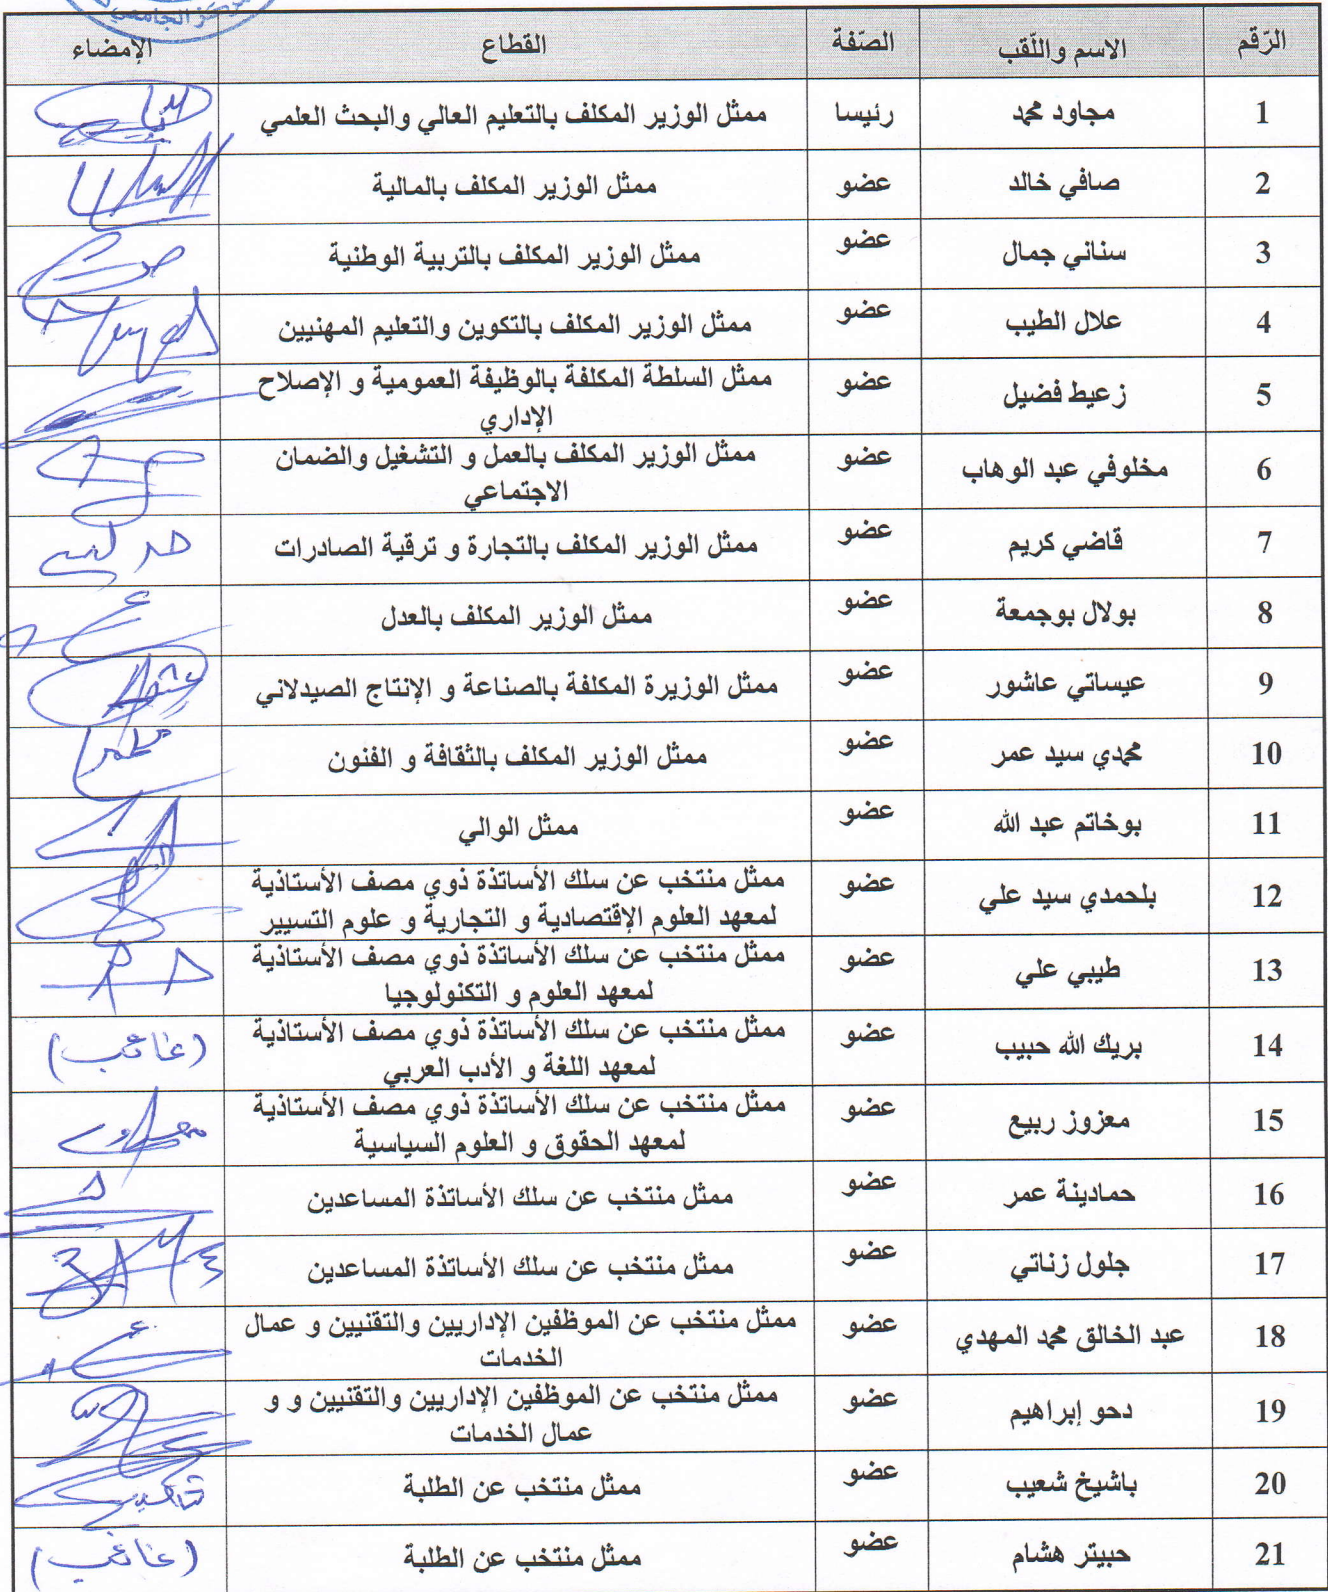 مركز الجامعي
الرّقم الاسم واللّقب الصّفة القطاع الإمضاء
1 مجاود محمد رئيسا ممثل الوزير المكلف بالتعليم العالي والبحث العلمي
2 صافي خالد عضو ممثل الوزير المكلف بالمالية
3 سناني جمال عضو ممثل الوزير المكلف بالتربية الوطنية
4 علال الطيب عضو ممثل الوزير المكلف بالتكوين والتعليم المهنيين
5 زعيط فضيل عضو ممثل السلطة المكلفة بالوظيفة العمومية و الإصلاح
الإداري
6 مخلوفي عبد الوهاب عضو ممثل الوزير المكلف بالعمل و التشغيل والضمان
الاجتماعي
7 قاضي كريم عضو ممثل الوزير المكلف بالتجارة و ترقية الصادرات
8 بولال بوجمعة عضو ممثل الوزير المكلف بالعدل
9 عيساتي عاشور عضو ممثل الوزيرة المكلفة بالصناعة و الإنتاج الصيدلاني
10 محمدي سيد عمر عضو ممثل الوزير المكلف بالثقافة و الفنون
11 بوخاتم عبد الله عضو ممثل الوالي
12 بلحمدي سيد علي عضو ممثل منتخب عن سلك الأساتذة ذوي مصف الأستاذية
لمعهد العلوم الإقتصادية و التجارية و علوم التسيير
13 طيبي علي عضو ممثل منتخب عن سلك الأساتذة ذوي مصف الأستاذية
لمعهد العلوم و التكنولوجيا
14 بريك الله حبيب عضو ممثل منتخب عن سلك الأساتذة ذوي مصف الأستاذية (غائب)
لمعهد اللغة و الأدب العربي
15 معزوز ربيع عضو ممثل منتخب عن سلك الأساتذة ذوي مصف الأستاذية
لمعهد الحقوق و العلوم السياسية
16 حمادينة عمر عضو ممثل منتخب عن سلك الأساتذة المساعدين
17 جلول زناتي عضو ممثل منتخب عن سلك الأساتذة المساعدين
18 عبد الخالق محمد المهدي عضو ممثل منتخب عن الموظفين الإداريين والتقنيين و عمال
الخدمات
19 دحو إبراهيم عضو ممثل منتخب عن الموظفين الإداريين والتقنيين و و
عمال الخدمات
20 باشيخ شعيب عضو ممثل منتخب عن الطلبة
21 حبيتر هشام عضو ممثل منتخب عن الطلبة (غائب)